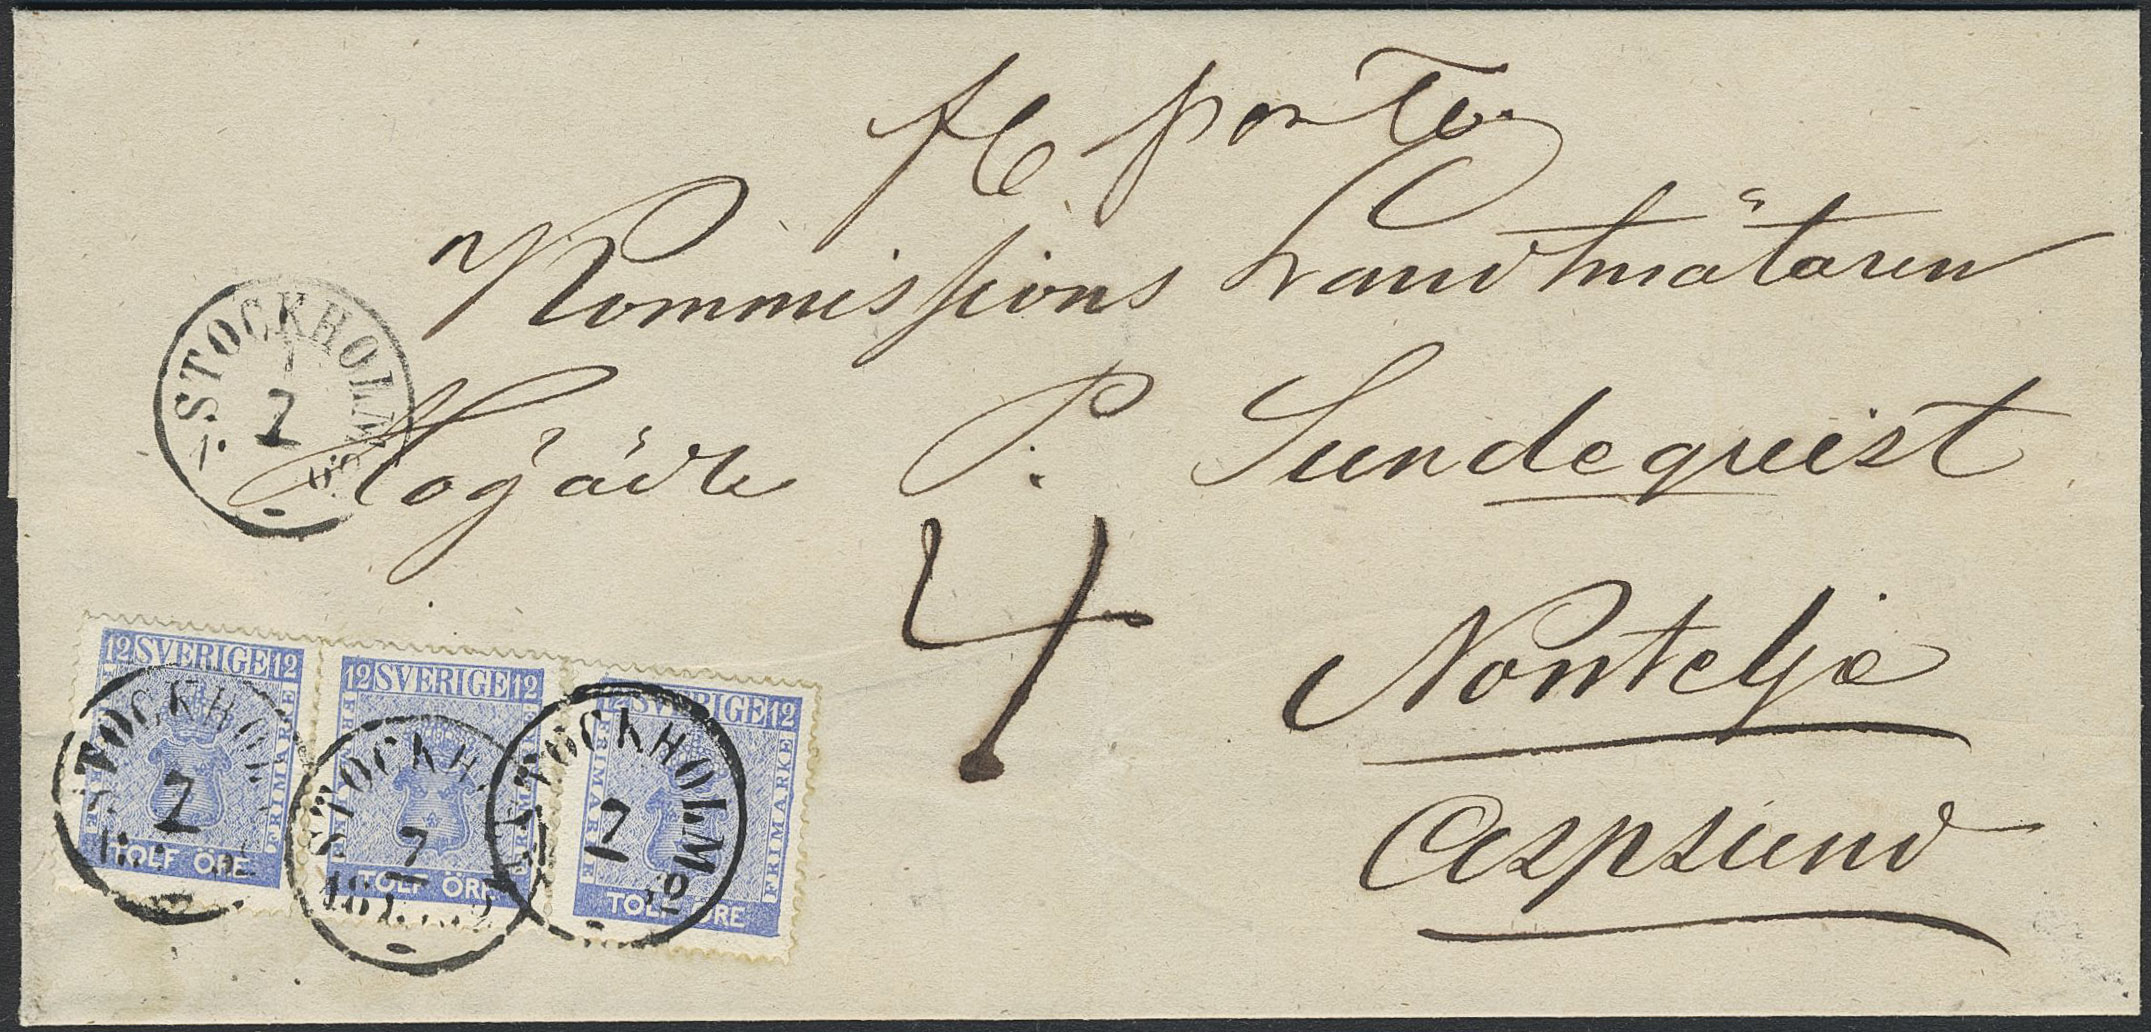 fl porto
Kommissions Landtmätaren
Högädle P. Sundequist
4
Norrtelje
Aspsund
STOCKHOLM
7
12 SVERIGE 12
FRIMÄRKE
TOLF ÖRE
STOCKHOLM
7
12 SVERIGE 12
FRIMÄRKE
TOLF ÖRE
STOCKHOLM
7
12 SVERIGE 12
FRIMÄRKE
TOLF ÖRE
STOCKHOLM
7